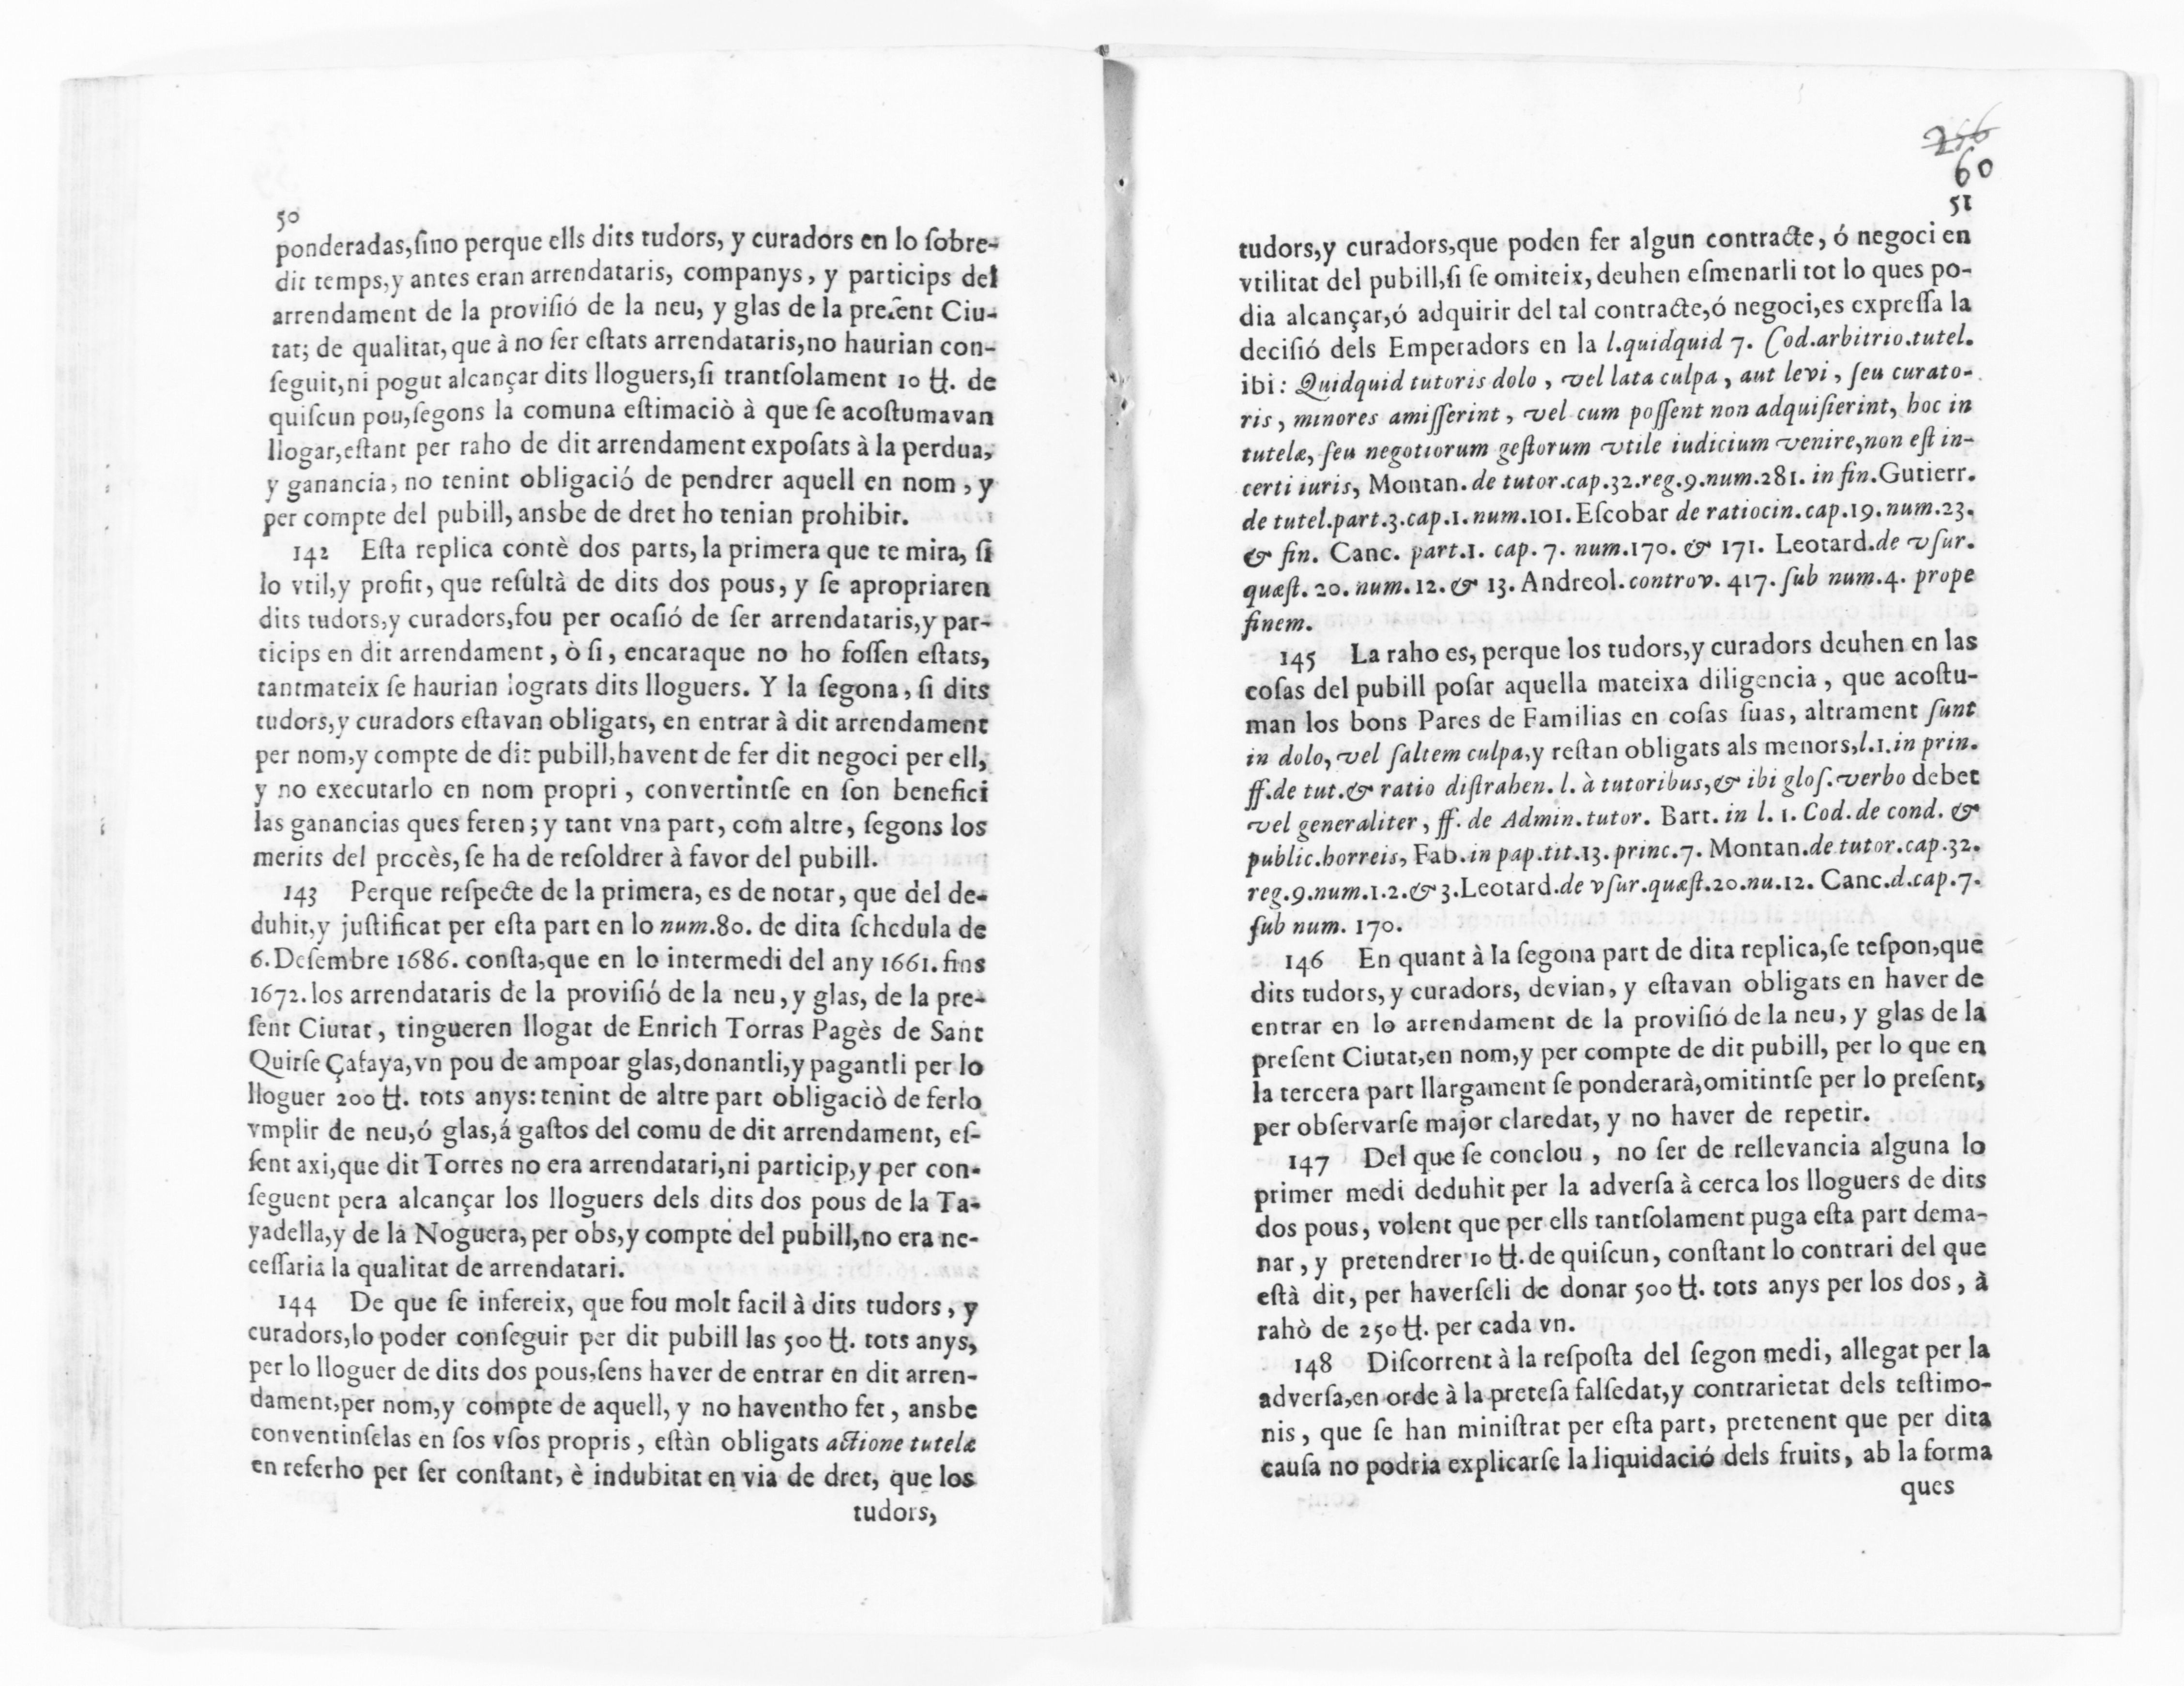 50
ponderadas,ſino perque ells dits tudors, y curadors en lo ſobre-
dit temps,y antes eran arrendataris, companys, y particips del
arrendament de la proviſió de la neu, y glas de la preſent Ciu-
tat; de qualitat, que à no ſer eſtats arrendataris,no haurian con-
ſeguit,ni pogut alcançar dits lloguers,ſi trantſolament 10 ₶. de
quiſcun pou,ſegons la comuna eſtimaciò à que ſe acoſtumavan
llogar,eſtant per raho de dit arrendament expoſats à la perdua,
y ganancia, no tenint obligació de pendrer aquell en nom, y
per compte del pubill, ansbe de dret ho tenian prohibit.
142 Eſta replica contè dos parts, la primera que te mira, ſi
lo vtil,y profit, que reſultà de dits dos pous, y ſe apropriaren
dits tudors,y curadors,fou per ocaſió de ſer arrendataris,y par-
ticips en dit arrendament, ò ſi, encaraque no ho foſſen eſtats,
tantmateix ſe haurian lograts dits lloguers. Y la ſegona, ſi dits
tudors,y curadors eſtavan obligats, en entrar à dit arrendament
per nom,y compte de dit pubill,havent de fer dit negoci per ell,
y no executarlo en nom propri, convertintſe en ſon benefici
las ganancias ques feren; y tant vna part, com altre, ſegons los
merits del procès, ſe ha de reſoldrer à favor del pubill.
143 Perque reſpecte de la primera, es de notar, que del de-
duhit,y juſtificat per eſta part en lo num.80. de dita ſchedula de
6.Deſembre 1686. conſta,que en lo intermedi del any 1661. fins
1672.los arrendataris de la proviſió de la neu, y glas, de la pre-
ſent Ciutat, tingueren llogat de Enrich Torras Pagès de Sant
Quirſe Çafaya,vn pou de ampoar glas,donantli,y pagantli per lo
lloguer 200 ₶. tots anys: tenint de altre part obligaciò de ferlo
vmplir de neu,ó glas,á gaſtos del comu de dit arrendament, eſ-
ſent axi,que dit Torres no era arrendatari,ni particip,y per con-
ſeguent pera alcançar los lloguers dels dits dos pous de la Ta-
yadella,y de la Noguera, per obs,y compte del pubill,no era ne-
ceſſaria la qualitat de arrendatari.
144 De que ſe infereix, que fou molt facil à dits tudors, y
curadors,lo poder conſeguir per dit pubill las 500 ₶. tots anys,
per lo lloguer de dits dos pous,ſens haver de entrar en dit arren-
dament,per nom,y compte de aquell, y no haventho fet, ansbe
conventinſelas en ſos vſos propris, eſtàn obligats actione tutelæ
en referho per ſer conſtant, è indubitat en via de dret, que los
tudors,
276
60
51
tudors,y curadors,que poden fer algun contracte, ó negoci en
vtilitat del pubill,ſi ſe omiteix, deuhen eſmenarli tot lo ques po-
dia alcançar,ó adquirir del tal contracte,ó negoci,es expreſſa la
deciſió dels Emperadors en la l.quidquid 7. Cod.arbitrio.tutel.
ibi: Quidquid tutoris dolo, vel lata culpa, aut levi, ſeu curato-
ris, minores amiſſerint, vel cum poſſent non adquiſierint, hoc in
tutelæ, ſeu negotiorum geſtorum vtile iudicium venire,non eſt in-
certi iuris, Montan. de tutor.cap.32.reg.9.num.281. in fin.Gutierr.
de tutel.part.3.cap.1.num.101. Eſcobar de ratiocin.cap.19.num.23.
& fin. Canc. part.1. cap. 7. num.170. & 171. Leotard.de vſur.
quæſt. 20. num. 12. & 13. Andreol. controv. 417. ſub num.4. prope
finem.
145 La raho es, perque los tudors,y curadors deuhen en las
coſas del pubill poſar aquella mateixa diligencia, que acoſtu-
man los bons Pares de Familias en coſas ſuas, altrament ſunt
in dolo, vel ſaltem culpa,y reſtan obligats als menors,l.1.in prin.
ff.de tut.& ratio diſtrahen. l. à tutoribus,& ibi gloſ.verbo debet
vel generaliter, ff. de Admin.tutor. Bart. in l. 1. Cod. de cond. &
public.horreis, Fab.in pap.tit.13.princ.7. Montan.de tutor.cap.32.
reg.9.num.1.2.& 3.Leotard.de vſur.quæſt.20.nu.12. Canc.d.cap.7.
ſub num. 170.
146 En quant à la ſegona part de dita replica,ſe teſpon,que
dits tudors, y curadors, devian, y eſtavan obligats en haver de
entrar en lo arrendament de la proviſió de la neu, y glas de la
preſent Ciutat,en nom,y per compte de dit pubill, per lo que en
la tercera part llargament ſe ponderarà,omitintſe per lo preſent,
per obſervarſe major claredat, y no haver de repetir.
147 Del que ſe conclou, no ſer de rellevancia alguna lo
primer medi deduhit per la adverſa à cerca los lloguers de dits
dos pous, volent que per ells tantſolament puga eſta part dema-
nar, y pretendrer 10 ₶. de quiſcun, conſtant lo contrari del que
eſtà dit, per haverſeli de donar 500 ₶. tots anys per los dos, à
rahò de 250 ₶. per cada vn.
148 Diſcorrent à la reſpoſta del ſegon medi, allegat per la
adverſa,en orde à la preteſa falſedat,y contrarietat dels teſtimo-
nis, que ſe han miniſtrat per eſta part, pretenent que per dita
cauſa no podria explicarſe la liquidació dels fruits, ab la forma
ques